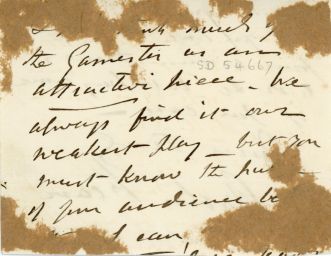 much of
the Gamester as an
attractive piece - We
SD 54667
always find it our
weakest play - but you
must know the
of your audience be
I can